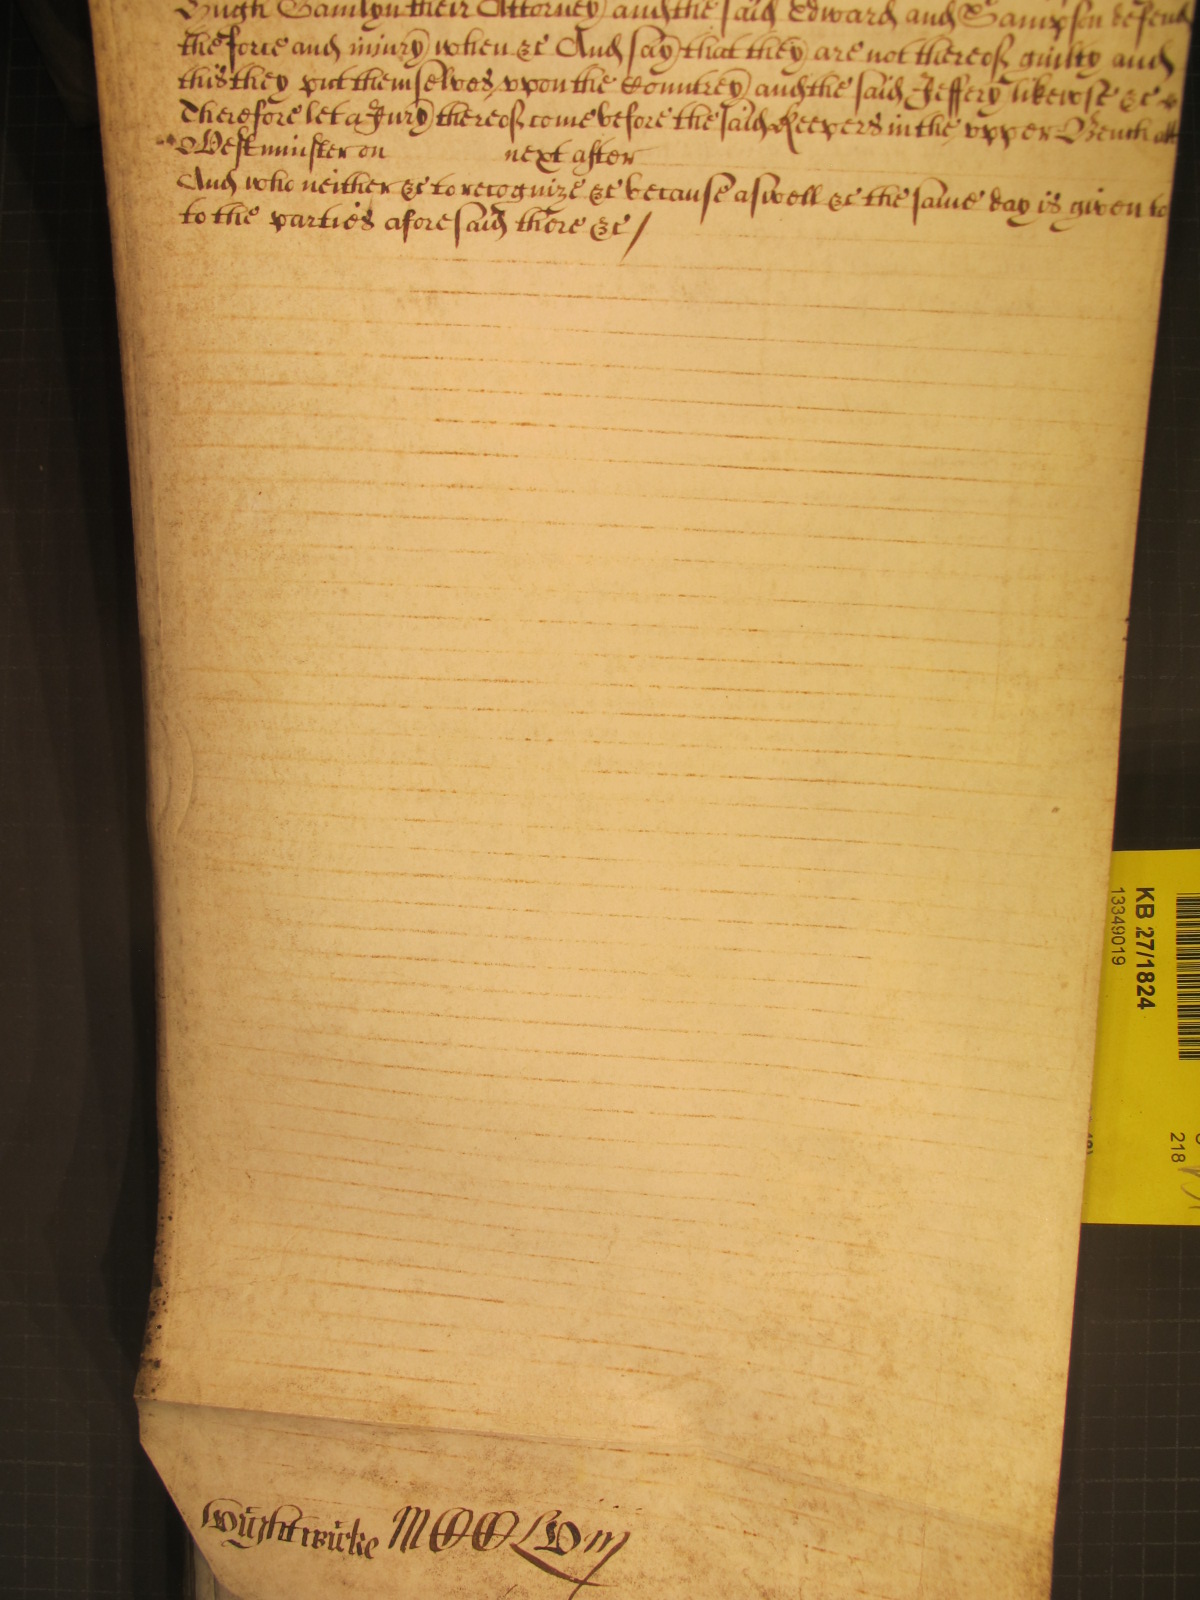 Hugh Hamlyn their Attorney and the said Edward and Sampson defend
the force and injury when &c And say that they are not thereof guilty and
this they put themselves upon the Countrey and the said Jeffery likewise &c
Therefore let a Jury thereof come before the said Keepers in the upper Bench att
Westminster on next after
And who neither &c to recognize &c because aswell &c the same day is given to
to the parties aforesaid there &c /
Wightwicke
KB 27/1824
13349019
218